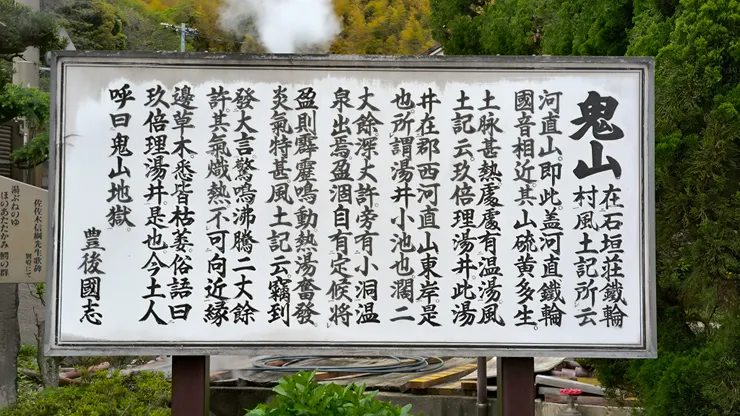 鬼山
在石垣荘鐵輪
村風土記所云
河直山。即此。盖河直鐵輪
國音相近。其山硫黄多生。
土脉甚熱。處處有温湯。風
土記云。玖倍理湯井。此湯
井在郡西河直山東岸。是
也。所謂湯井小池也。濶二
丈餘。深丈許。旁有小洞。温
泉出焉。盈涸自有定候。將
盈則霹靂鳴動。熱湯奮發。
炎氣特甚。風土記云。竊到
發大言。驚鳴沸騰二丈餘
許。其氣熾熱。不可向近。縁
邊草木。悉皆枯萎。俗語曰
玖倍理湯井是也。今土人
呼曰鬼山地獄。
豊後國志
佐佐木信綱先生歌碑
湯ぶねのゆ
ほのあたたかみ